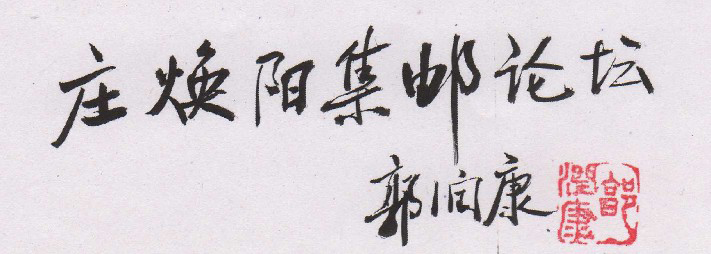 庄焕阳集邮论坛
郭润康
郭润康